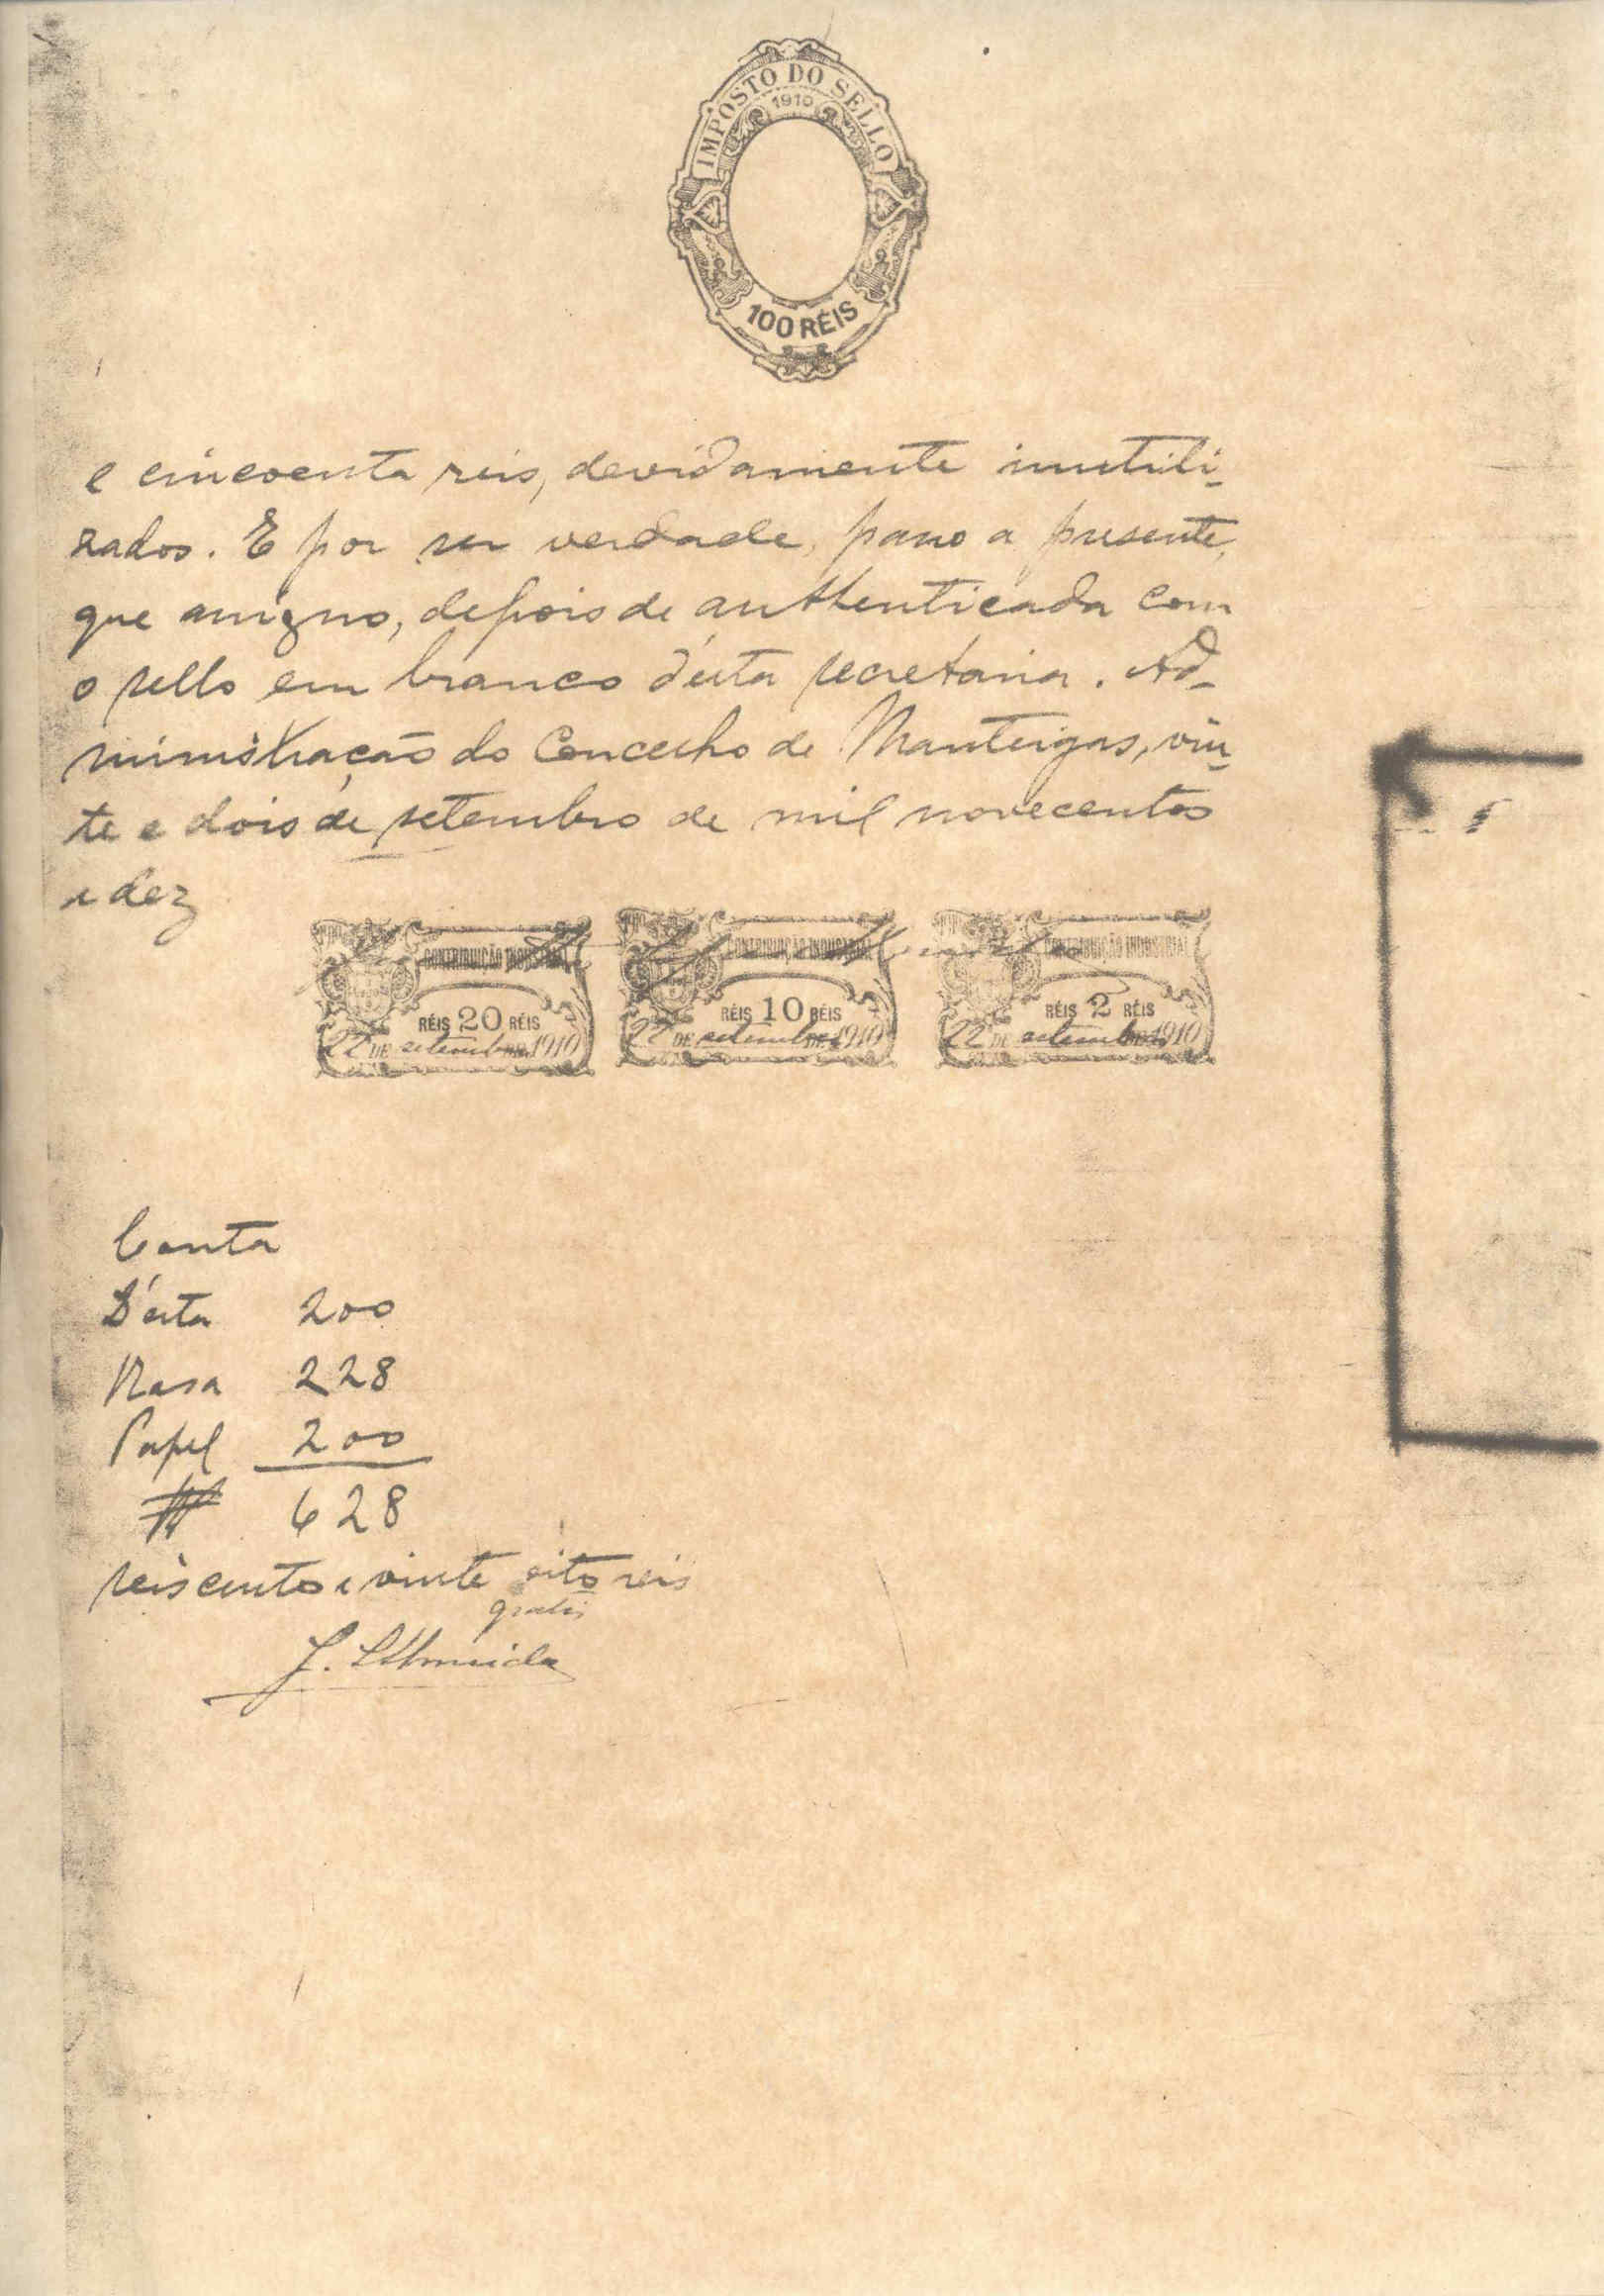 IMPOSTO DO SELLO
1910
100 RÉIS
e cincoenta réis, devidamente inutili-
zados. E por ser verdade, passo a presente,
que assigno, depois de authenticada com
o sello em branco d'esta secretaria. Ad-
ministração do Concelho de Manteigas, vin-
te e dois de setembro de mil novecentos
e dez
CONTRIBUIÇÃO INDUSTRIAL CONTRIBUIÇÃO INDUSTRIAL CONTRIBUIÇÃO INDUSTRIAL
RÉIS 20 RÉIS RÉIS 10 RÉIS RÉIS 2 RÉIS
22 DE setembro DE 1910 22 DE setembro DE 1910 22 DE setembro DE 1910
Conta
D'esta 200
Rasa 228
Papel 200
628
seiscentos e vinte oito reis
gratis
J. Almeida